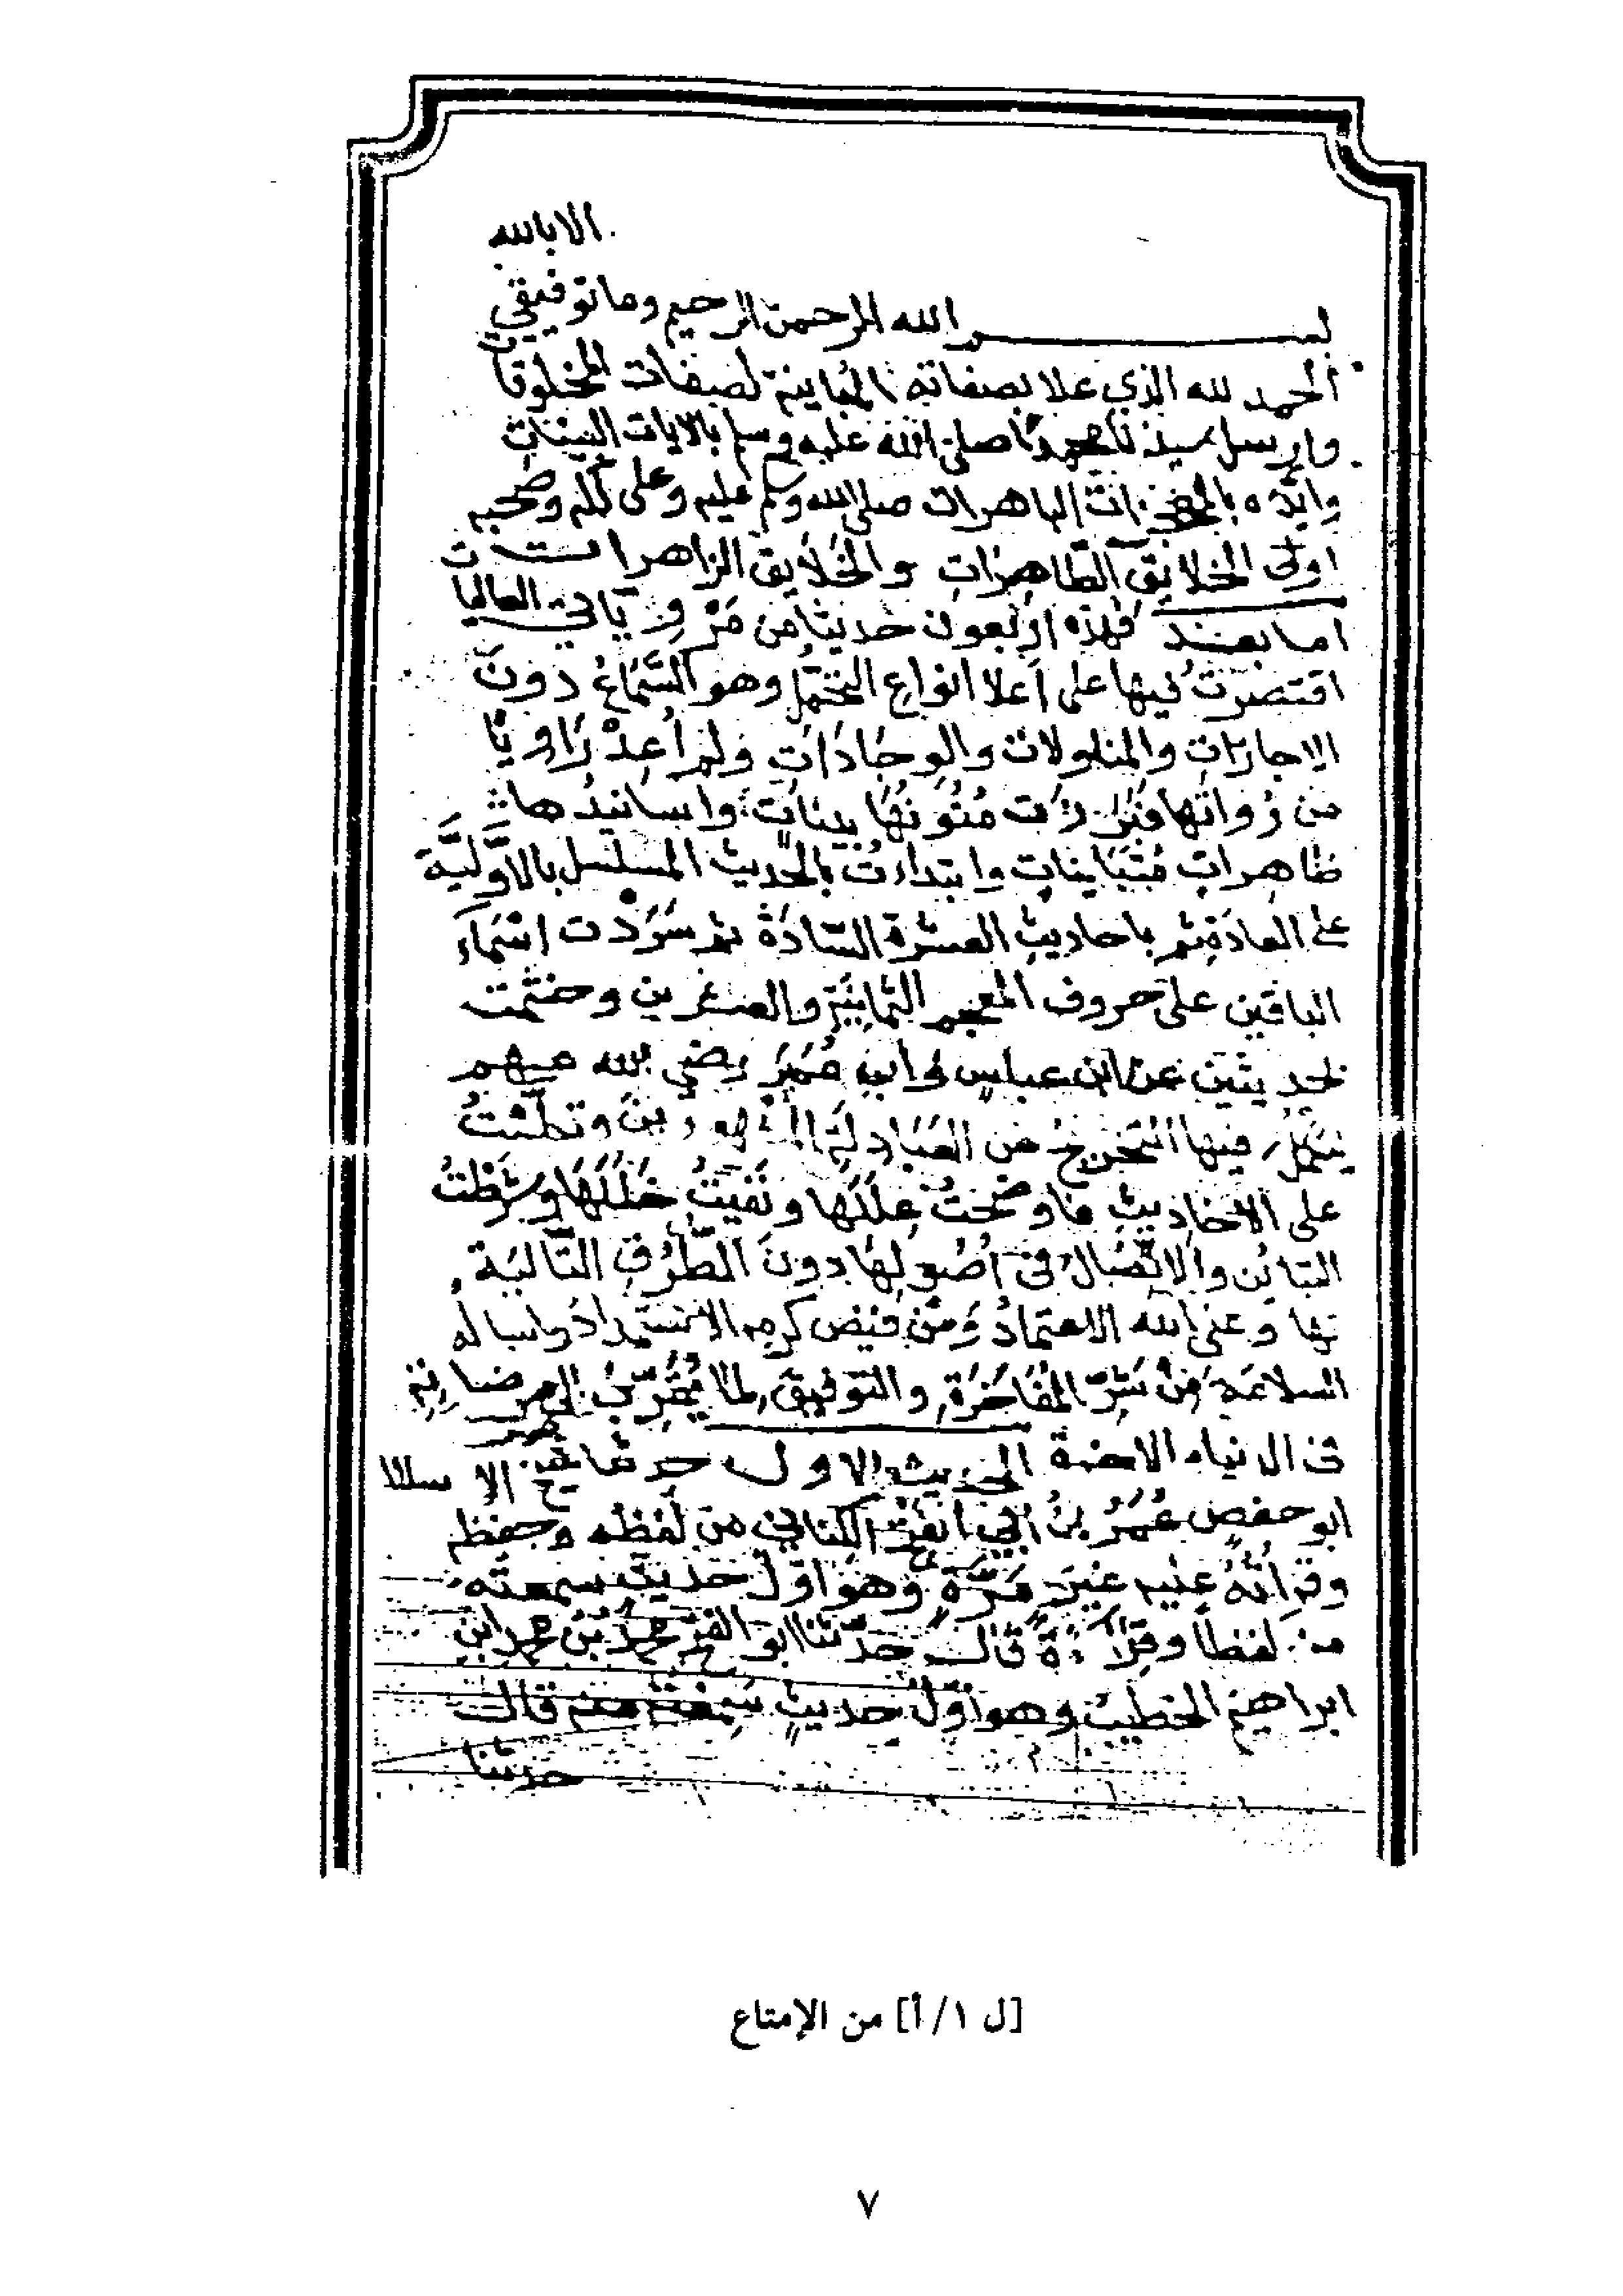 الا بالله
بسم الله الرحمن الرحيم وما توفيقي
الحمد لله الذي علا بصفاته المباينة لصفات المخلوقات
وارسل سيدنا محمدا صلى الله عليه وسلم بالايات البينات
وايده بالمعجزات الباهرات صلى الله وسلم عليه وعلى آله وصحبه
اولى الخلايق الطاهرات والخلايق الزاهرات
اما بعد فهذه اربعون حديثا من مروياتي العاليات
اقتصرت فيها على أعلا انواع التحمل وهو السماع دون
الاجازات والمناولات والوجادات ولم أعد راويا
من رواتها فبرزت متونها بينات واسانيدها
ظاهرات متباينات وابتداءت بالحديث المسلسل بالاولية
على العادة ثم باحاديث العشرة السادة ثم سردت اسماء
الباقين على حروف المعجم الثمانية والعشرين وختمت
بحديثين عن ابن عباس وابن عمر رضي الله عنهم
ليكمل فيها التخريج عن العبادلة المشهورين وتكلمت
على الاحاديث فاوضحت عللها ونفيت خللها وشرطت
التباين والاتصال في اصولها دون الطرق التالية
لها وعلى الله الاعتماد ومن فيض كرمه الاستمداد واساله
السلامة من شر المفاخرة والتوفيق لما يقرب الى مرضاته
في الدنيا والاخرة الحديث الاول حدثنا شيخ الاسلام
ابو حفص عمر بن أبي الفتح الكناني من لفظه وحفظه
وقراته عليه غير مرة وهو اول حديث سمعته
منه لفظا وقراءة قال حدثنا ابو الفتح محمد بن محمد ابن
ابراهيم الخطيب وهو اول حديث سمعته منه قال
حدثنا
[ل ١/ أ] من الإمتاع
٧